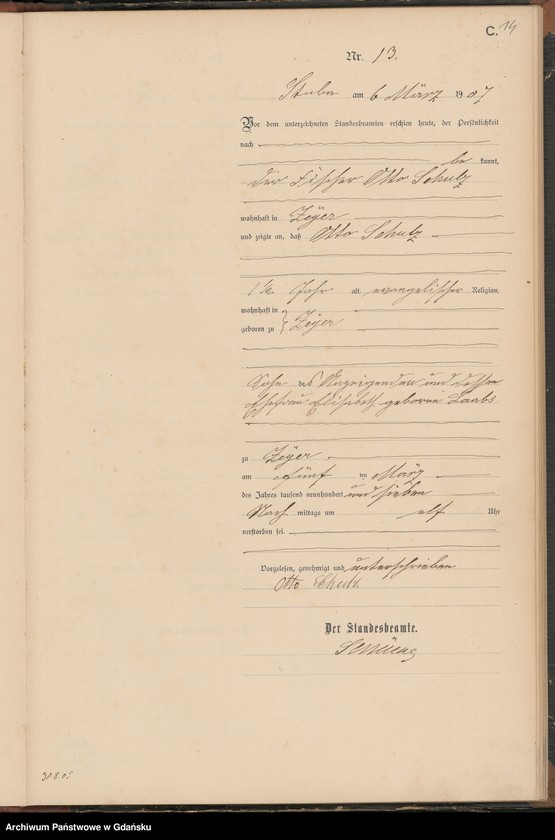 C. 14
Nr. 13.
Stuba am 6 März 1907
Vor dem unterzeichneten Standesbeamten erschien heute, der Persönlichkeit
nach
be kannt,
der Fischer Otto Schulz
wohnhaft in Zeyer
und zeigte an, daß Otto Schulz
1 1/2 Jahr alt, evangelischer Religion,
wohnhaft in
geboren zu Zeyer
Sohn des Anzeigenden und dessen
Ehefrau Elisabeth geborene Laabs
zu Zeyer
am fünf ten März
des Jahres tausend neunhundert und sieben
Nach mittags um elf Uhr
verstorben sei.
Vorgelesen, genehmigt und unterschrieben
Otto
Der Standesbeamte.
30.8.05
Archiwum Państwowe w Gdańsku